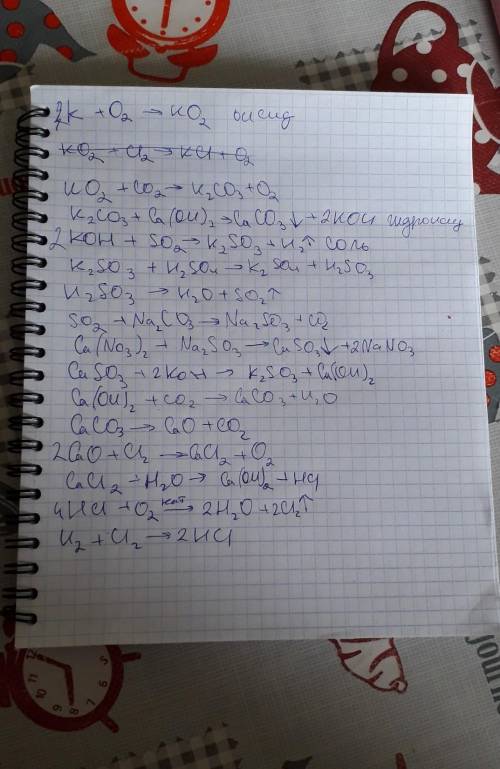 2K + O₂ → KO₂ оксид
KO₂ + Cl₂ → KCl + O₂
KO₂ + CO₂ → K₂CO₃ + O₂
K₂CO₃ + Ca(OH)₂ → CaCO₃↓ + 2KOH гидроксид
2KOH + SO₂ → K₂SO₃ + H₂↑ Соль
K₂SO₃ + H₂SO₄ → K₂SO₄ + H₂SO₃
H₂SO₃ → H₂O + SO₂↑
SO₂ + Na₂CO₃ → Na₂SO₃ + CO₂
Ca(NO₃)₂ + Na₂SO₃ → CaSO₃↓ + 2NaNO₃
CaSO₃ + 2KOH → K₂SO₃ + Ca(OH)₂
Ca(OH)₂ + CO₂ → CaCO₃ + H₂O
CaCO₃ → CaO + CO₂
2CaO + Cl₂ → CaCl₂ + O₂
CaCl₂ + H₂O → Ca(OH)₂ + HCl
4HCl + O₂ кат → 2H₂O + 2Cl₂↑
H₂ + Cl₂ → 2HCl
journe